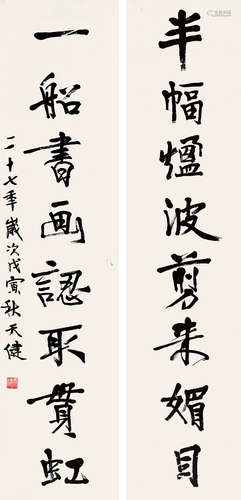 半幅煴波剪来媚目
一船書画認取貫虹
二十七年歲次戊寅秋天健